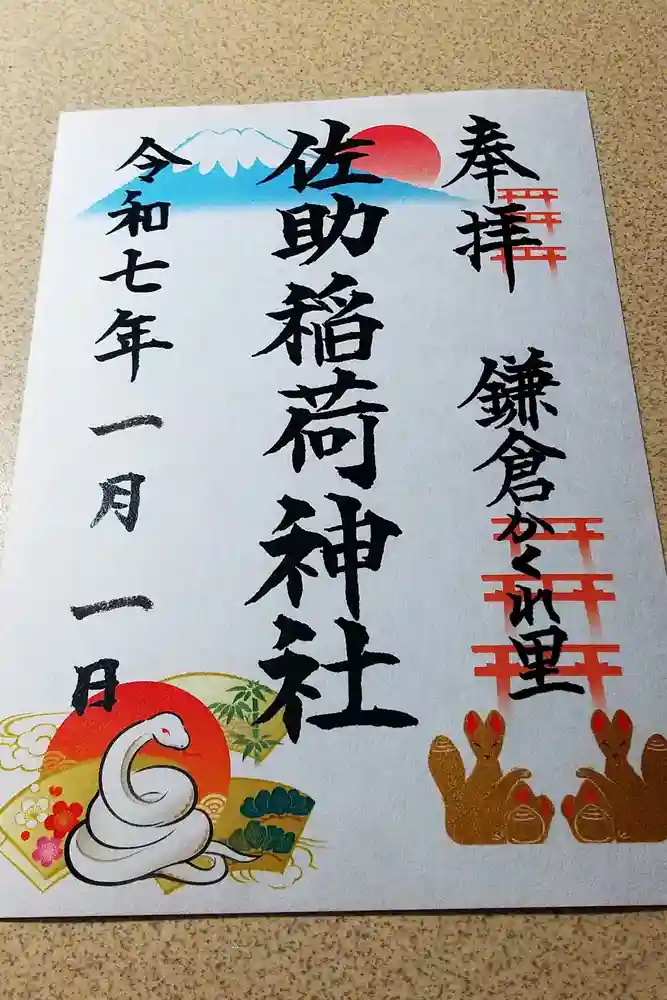 奉拝 鎌倉かくれ里
佐助稲荷神社
令和七年一月一日